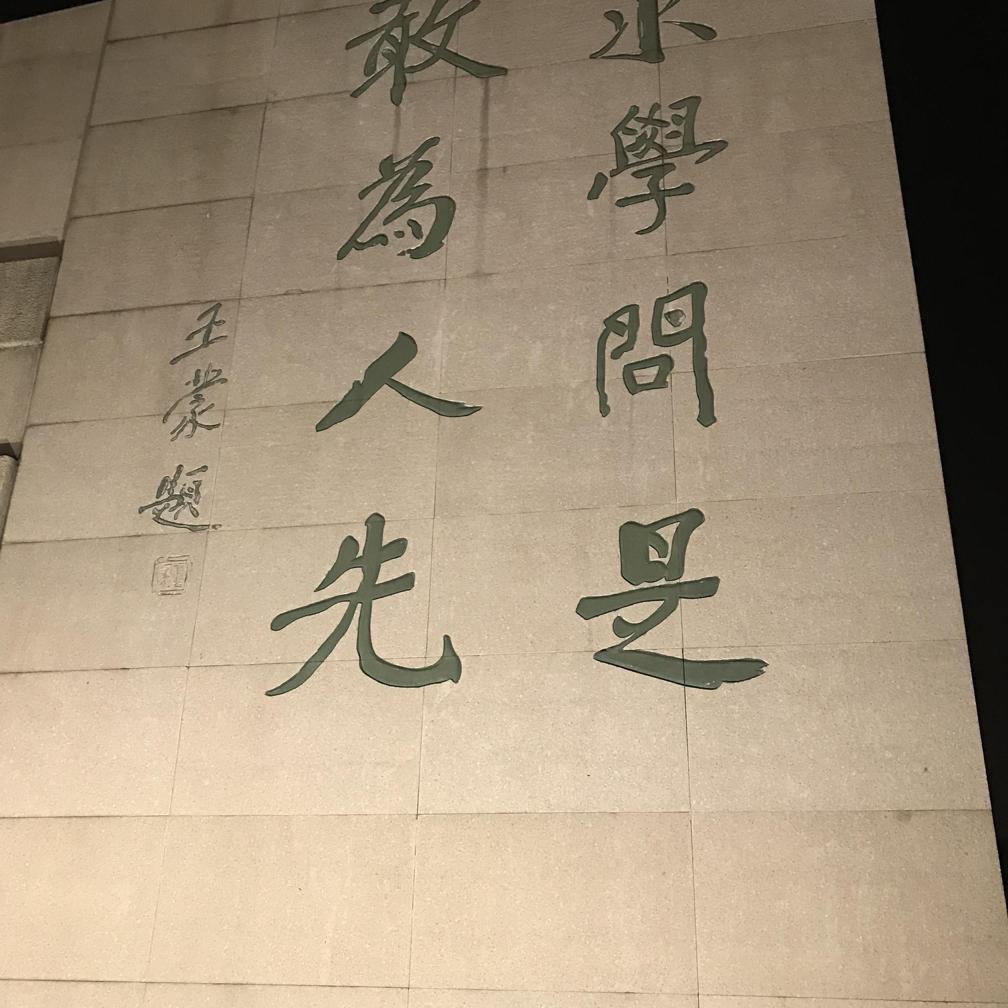 求學問是
敢為人先
王蒙題